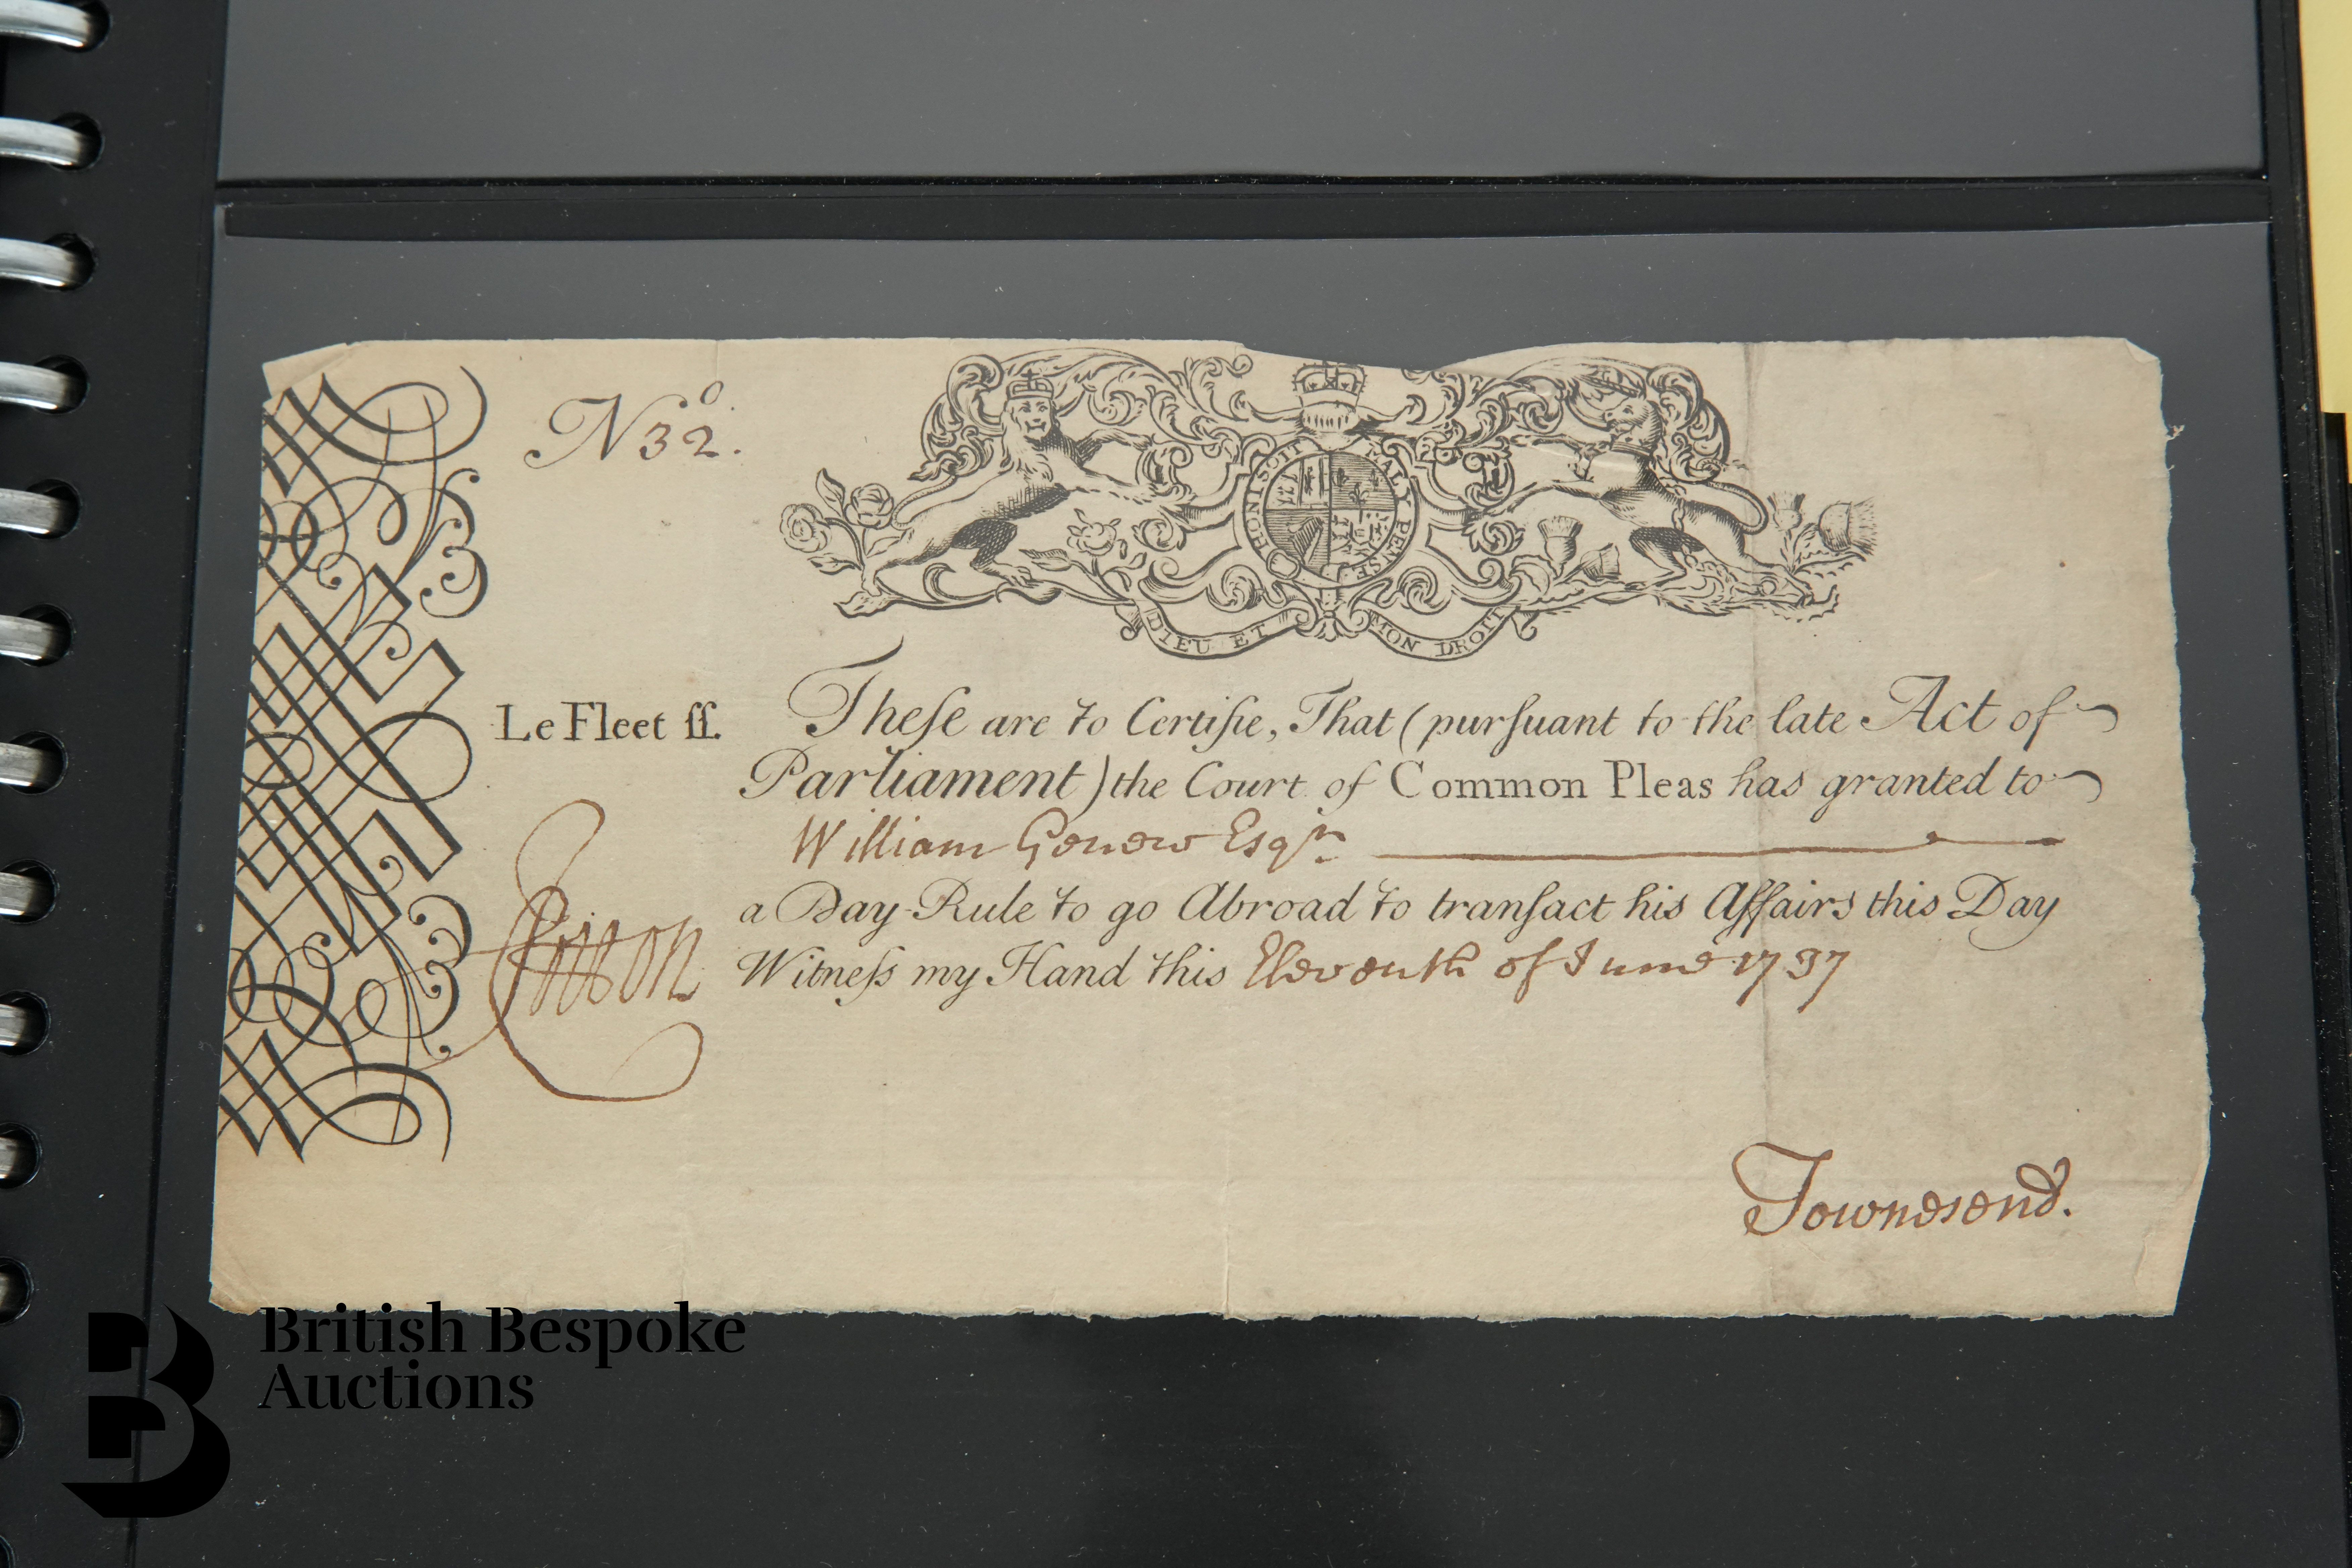 No 32.
HONI SOIT MAL Y PENSE
DIEU ET MON DROIT
Le Fleet ſſ. Theſe are to Certifie, That (purſuant to the late Act of
Parliament) the Court of Common Pleas has granted to
William Genew Esqr.
a Day-Rule to go Abroad to tranſact his Affairs this Day
Witneſs my Hand this Eleventh of June 1737
Townesend.
British Bespoke
Auctions